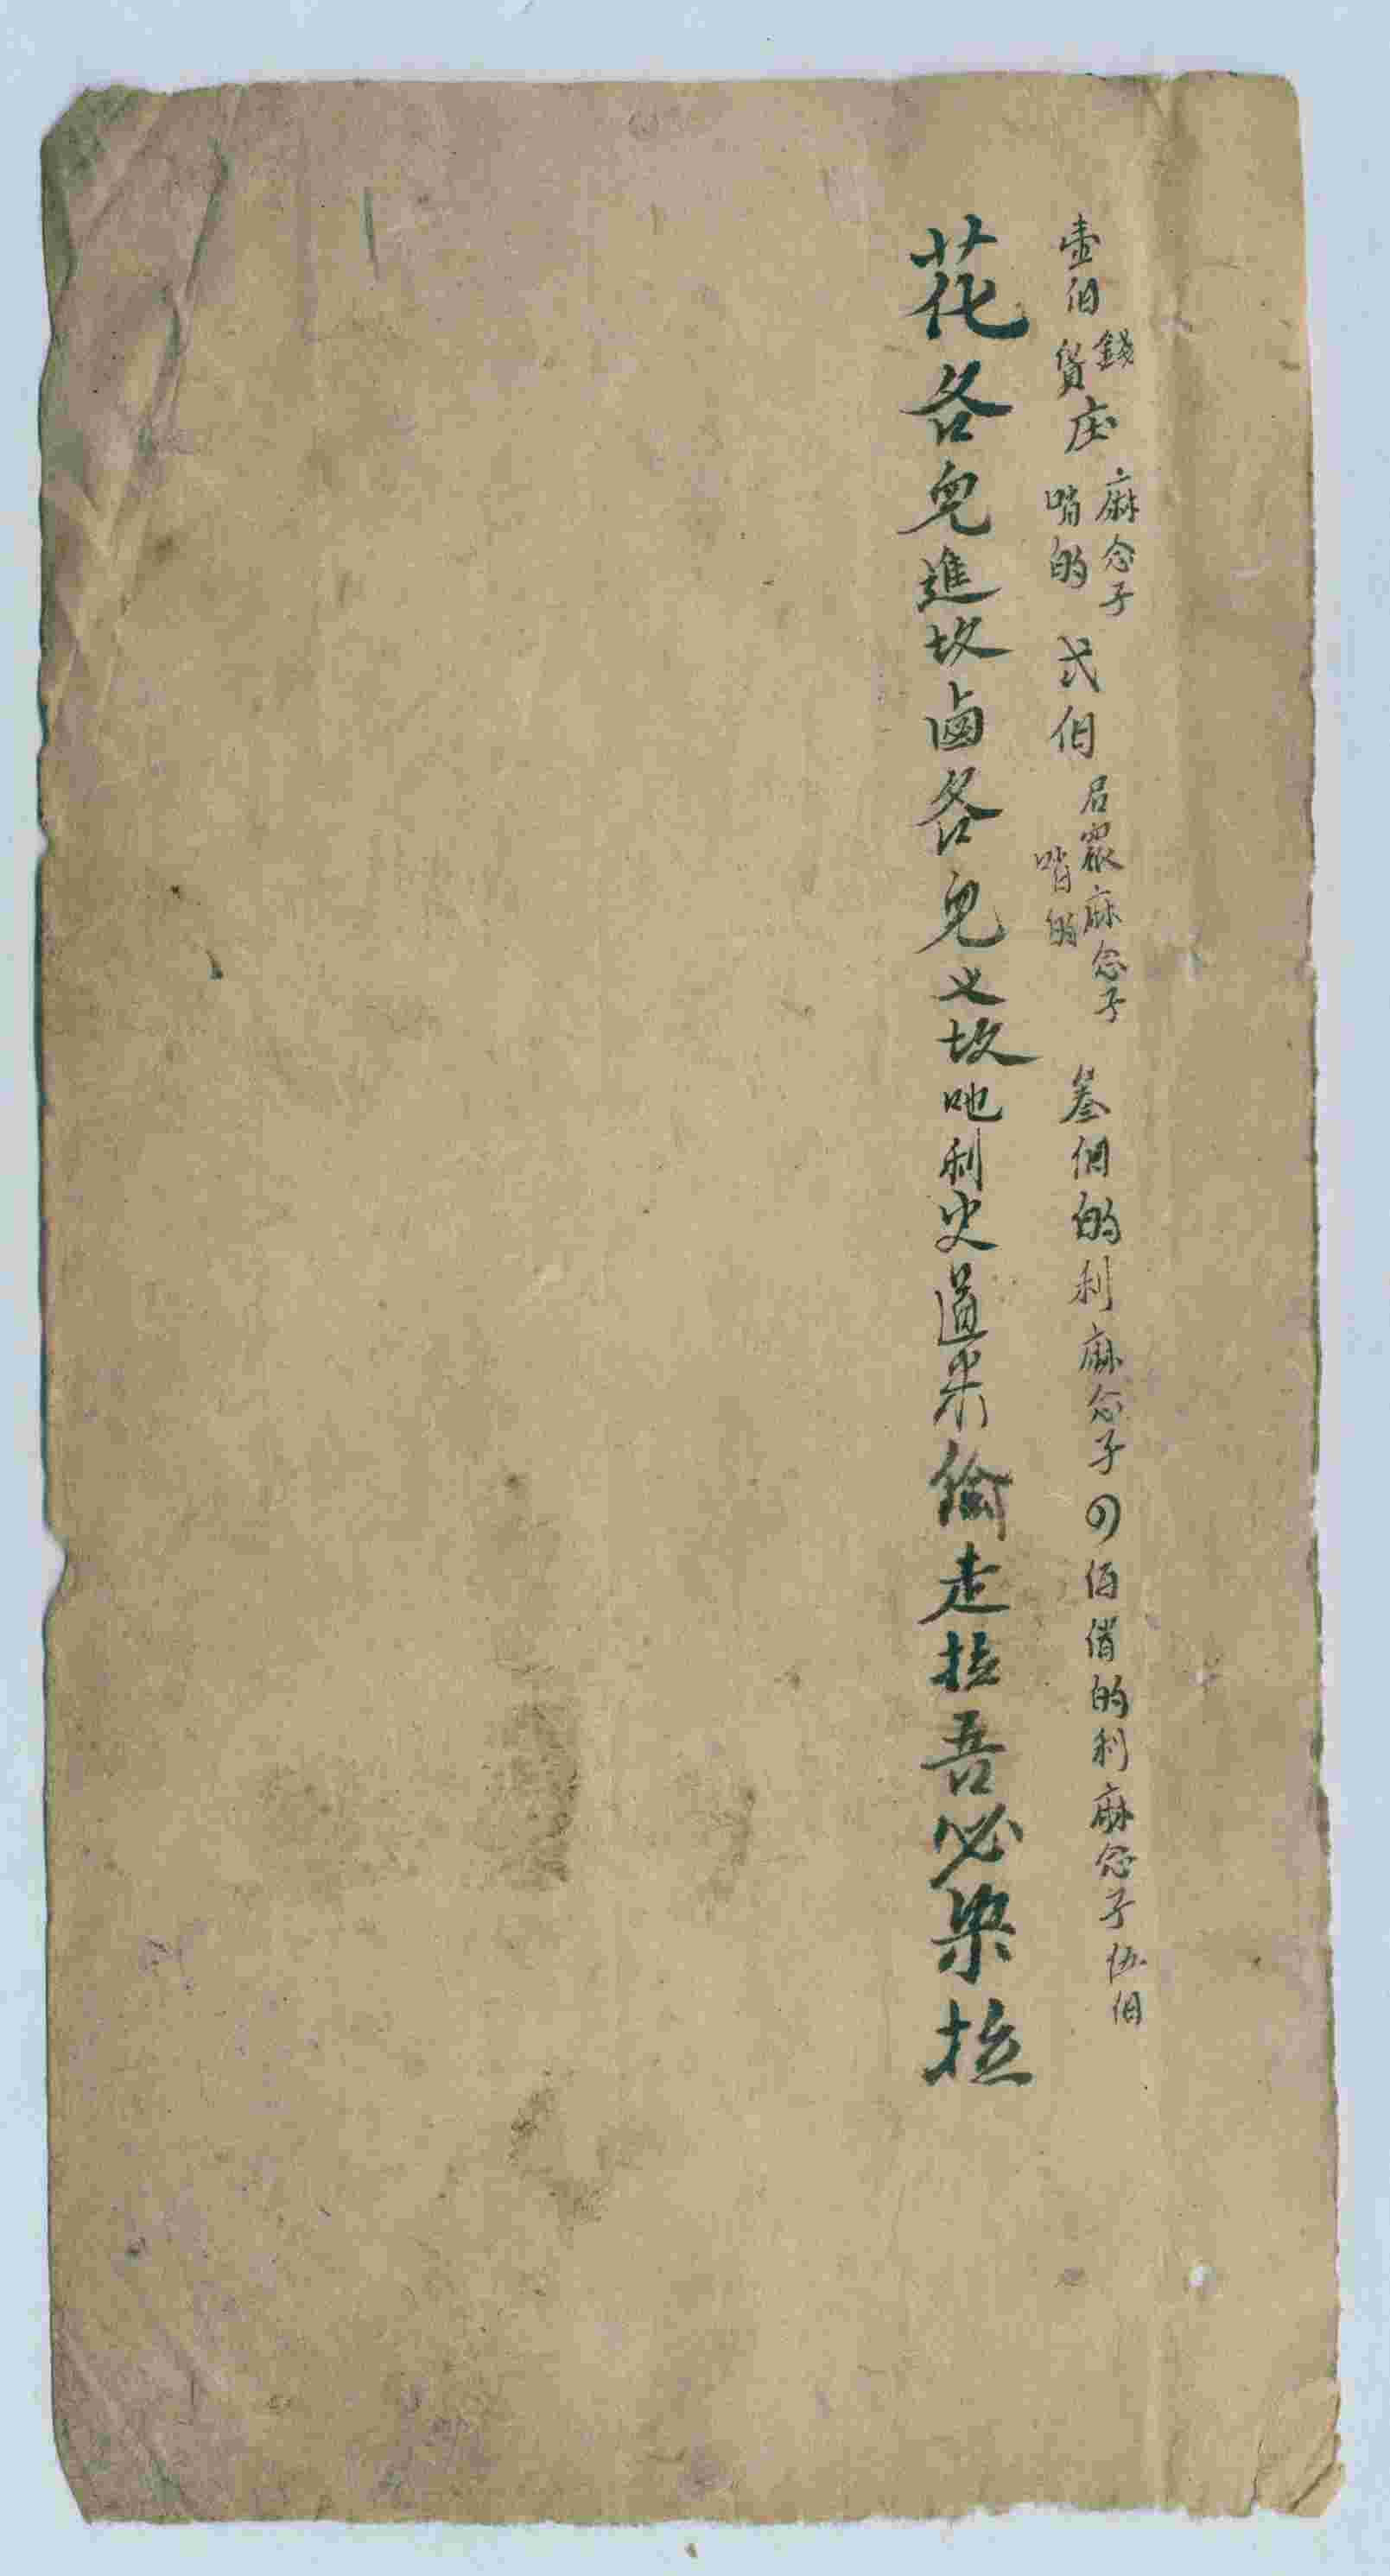 壹佰錢貨庄麻念子哨的弍佰后眾麻念子哨的叁佰的利麻念子四佰俏的利麻念子伍佰
花各兒進坎鹵各兒也坎吔利史道米偷走拉吾必染拉